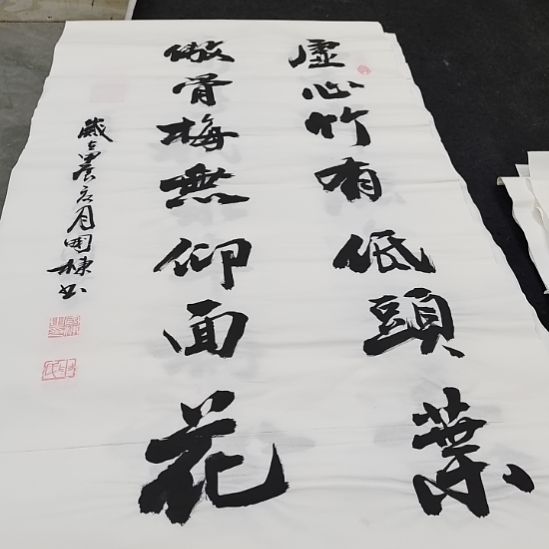 虛心竹有低頭葉
傲骨梅無仰面花
歲在
月國棟書